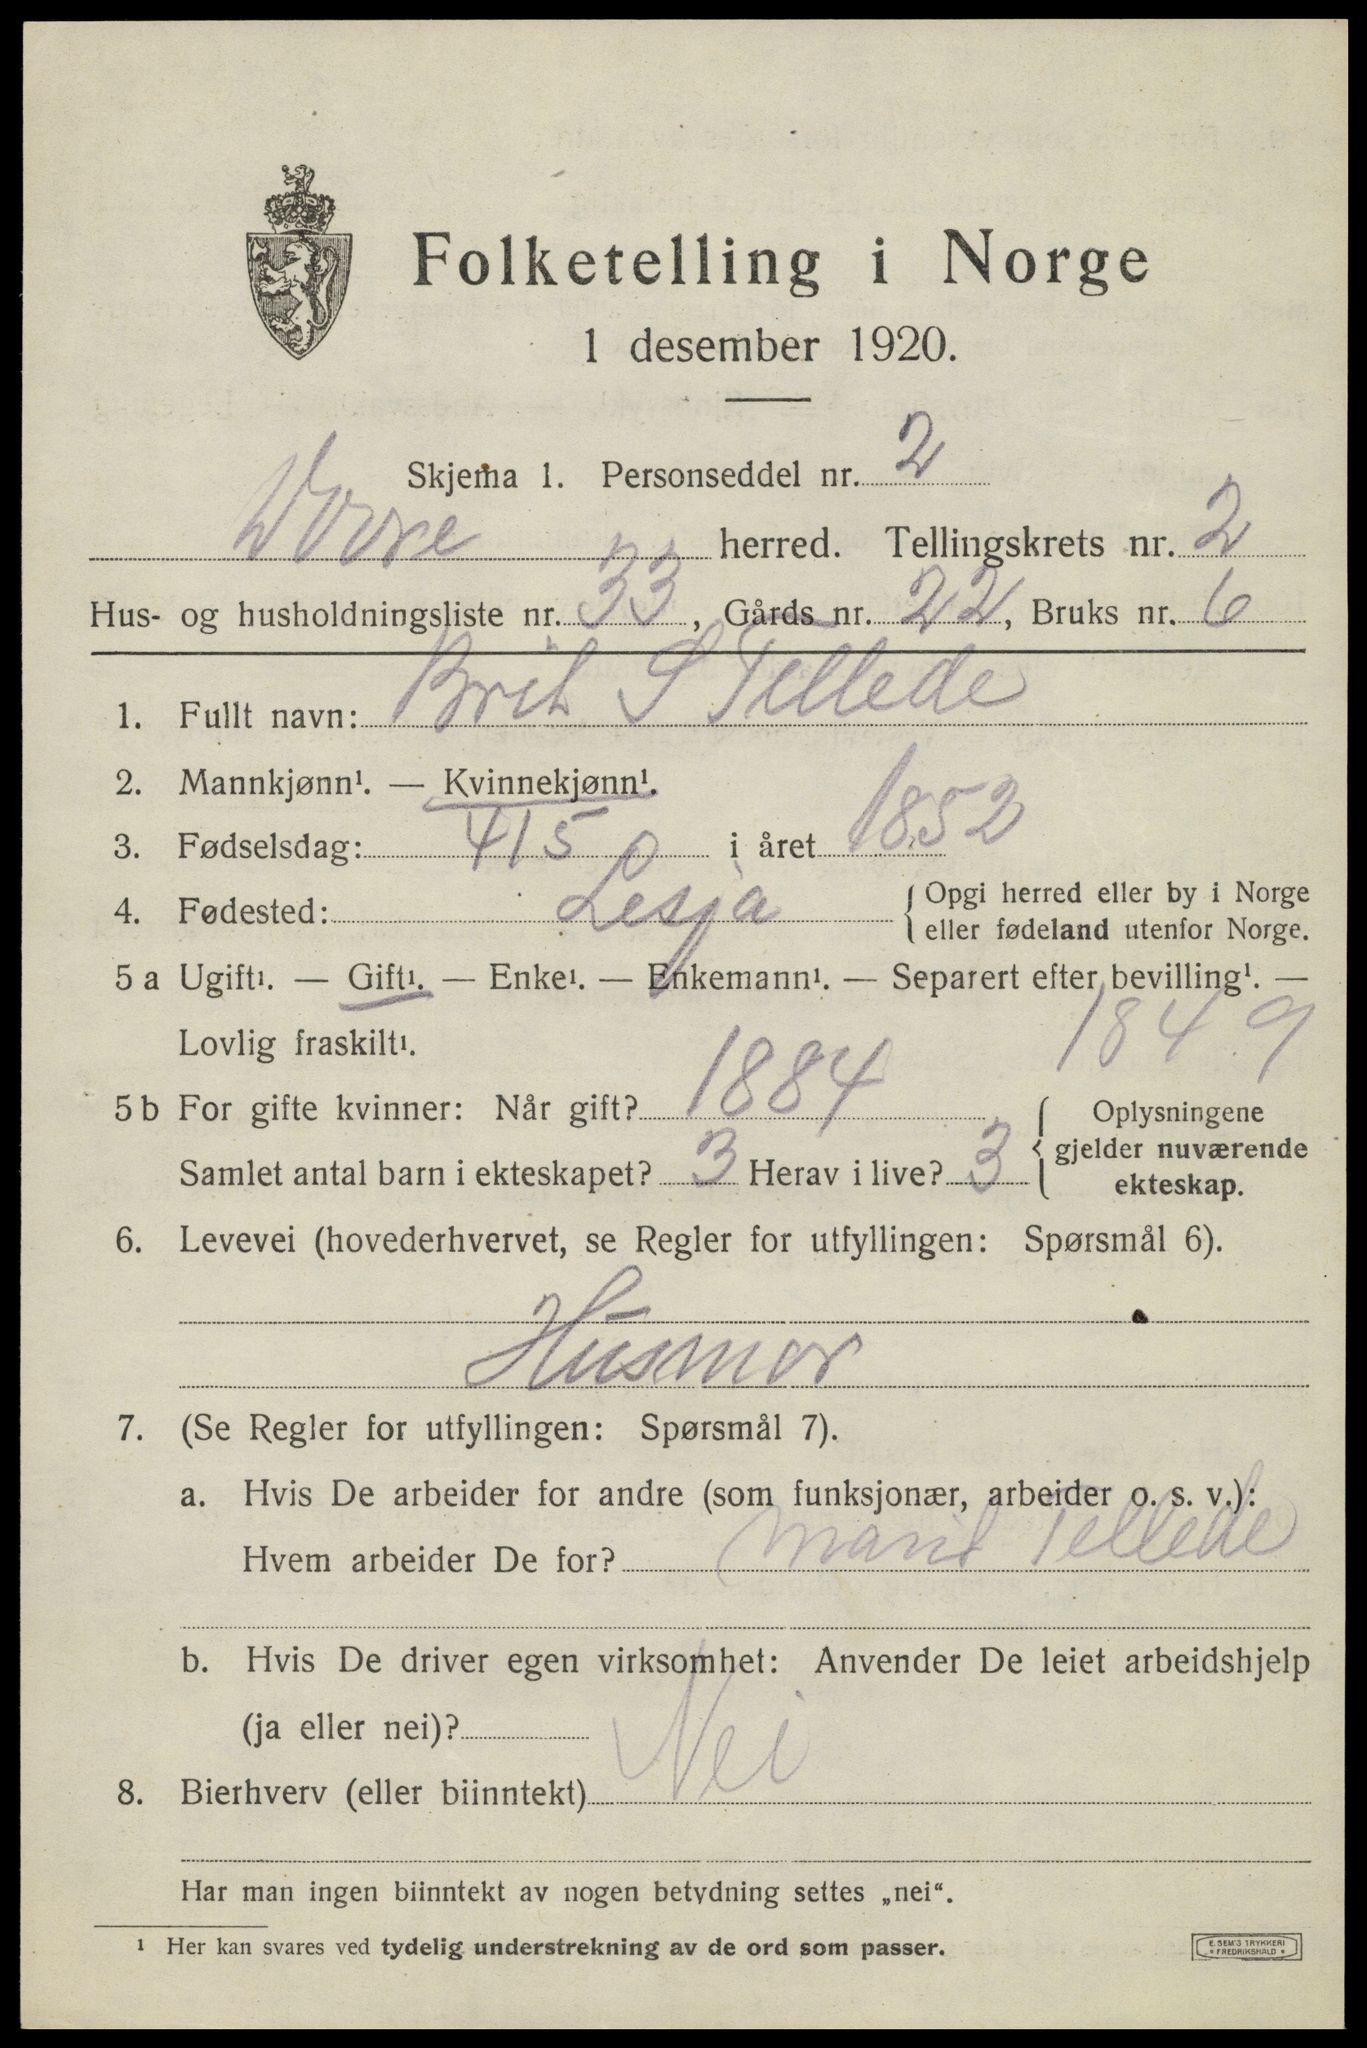 Folketelling i Norge
1 desember 1920.
Skjema 1. Personseddel nr. 2
Dovre herred. Tellingskrets nr. 2
Hus- og husholdningsliste nr. 33, Gårds nr. 22, Bruks nr. 6
1. Fullt navn: Brit S Tellede
2. Mannkjønn¹. — Kvinnekjønn¹.
3. Fødselsdag: 4/5 i året 1852
4. Fødested: Lesja { Opgi herred eller by i Norge
eller fødeland utenfor Norge.
5 a Ugift¹. — Gift¹. — Enke¹. — Enkemann¹. — Separert efter bevilling¹. —
Lovlig fraskilt¹. 1849
5 b For gifte kvinner: Når gift? 1884 { Oplysningene
gjelder nuværende
ekteskap.
Samlet antal barn i ekteskapet? 3 Herav i live? 3
6. Levevei (hovederhvervet, se Regler for utfyllingen: Spørsmål 6).
Husmor
7. (Se Regler for utfyllingen: Spørsmål 7).
a. Hvis De arbeider for andre (som funksjonær, arbeider o. s. v.):
Hvem arbeider De for? Marit Tellede
b. Hvis De driver egen virksomhet: Anvender De leiet arbeidshjelp
(ja eller nei)?
8. Bierhverv (eller biinntekt) Nei
Har man ingen biinntekt av nogen betydning settes „nei“.
¹ Her kan svares ved tydelig understrekning av de ord som passer.
E. SEM'S TRYKKERI
• FREDRIKSHALD •